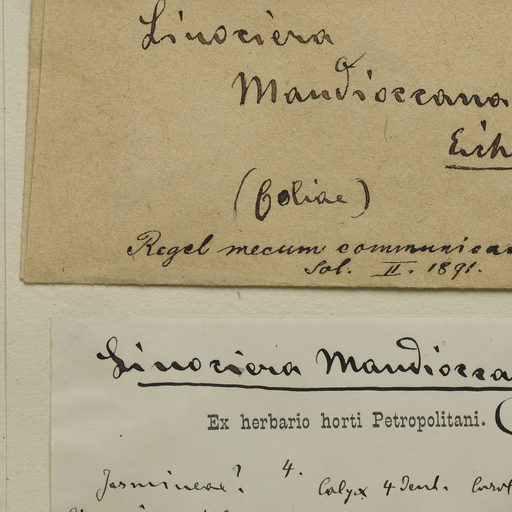 Linociera
Mandioccana
Eich
(Coliae)
Regel mecum communicav
Sol. II. 1891.
Linociera Mandiocca
Ex herbario horti Petropolitani.
Jasmineae? 4. Calyx 4 dent. Coroll